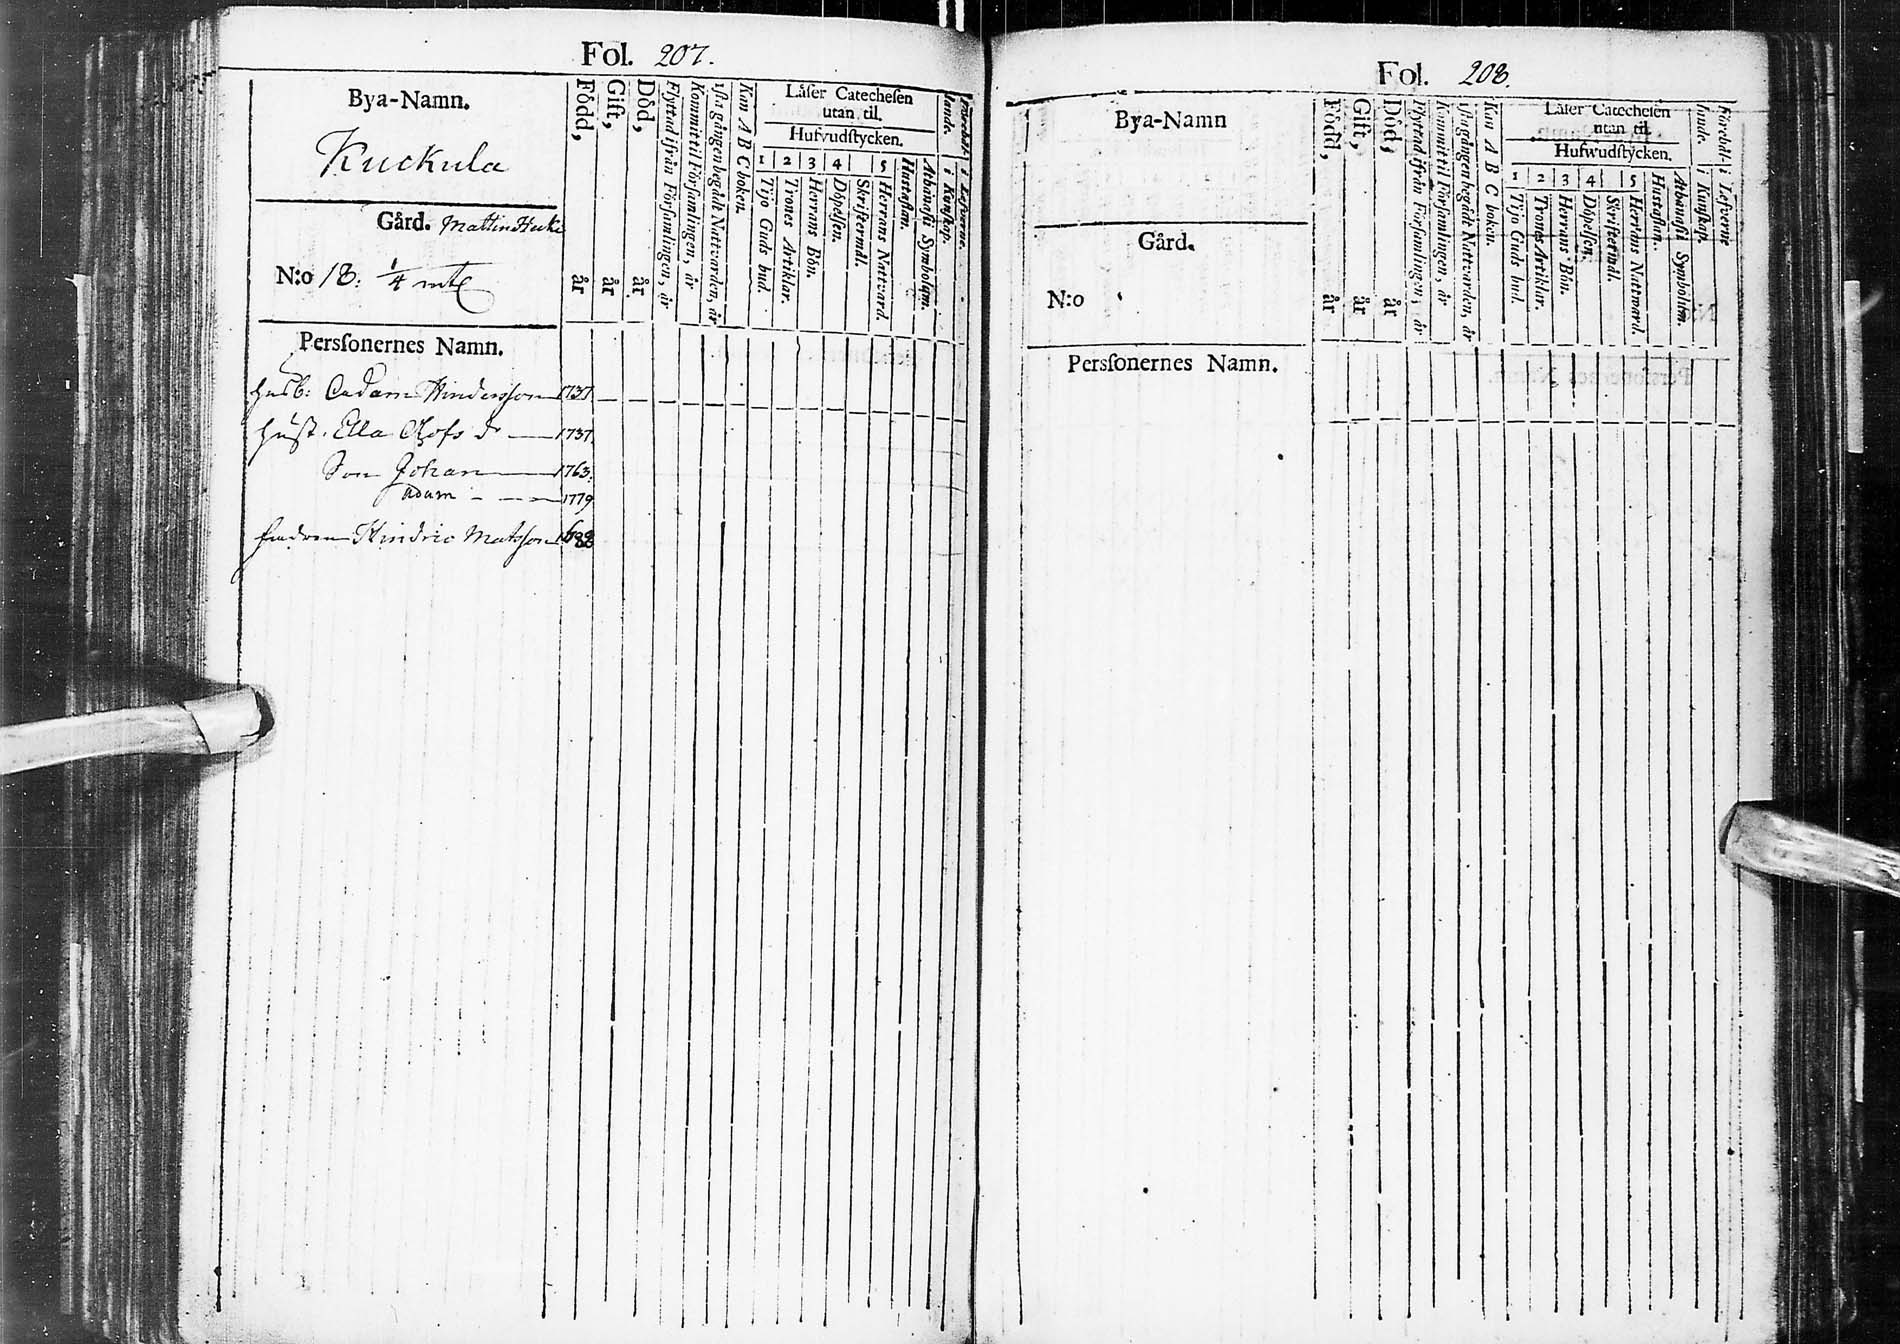 Fol. 207.
Bya-Namn.
Kuckula
Gård. Mattinheiki
N:o 18. 1/4 mtl
Persſonernes Namn.
Född, år
Gift, år
Död, år
Flyttad ifrån Församlingen, år
Kommit til Församlingen, år
1ſta gången begådt Nattvarden, år
Kan A B C boken.
Läſer Catecheſen
utan til.
Hufvudſtycken.
1 2 3 4 5
Tijo Guds bud.
Trones Artiklar.
Herrans Bön.
Döpelſen.
Skriftermål.
Herrans Nattvard.
Huſtaflan.
Athanaſii Symbolum.
Förehål-
lande.
i Kunſkap.
i Lefverne.
Husb: Adam Hindersson 1737
Hust. Ella Olofs dr 1737
Son Johan 1763
Adam 1779
Hindric Matsson
Fol. 208
Bya-Namn
Gård.
N:o
Persſonernes Namn.
Född, år
Gift, år
Död, år
Flyttad ifrån Förſamlingen, år
Kommit til Förſamlingen, år
1ſta gången begådt Nattvarden, år
Kan A B C boken.
Läſer Catecheſen
utan til.
Hufwudſtycken.
1 2 3 4 5
Tijo Guds bud.
Trones Artiklar.
Herrans Bön.
Döpelſen.
Skriftermål.
Herrans Nattward.
Huſtaflan.
Athanaſii Symbolum.
Förehåll-
lande.
i Kunſkap.
i Lefverne